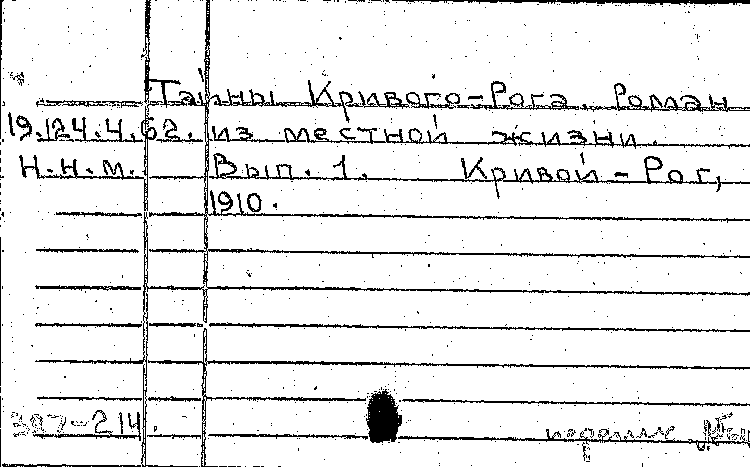 Тайны Кривого-Рога. Роман
19.124.4.62. из местной жизни.
Н.Н.М. Вып. 1. Кривой-Рог,
1910.
397-214.